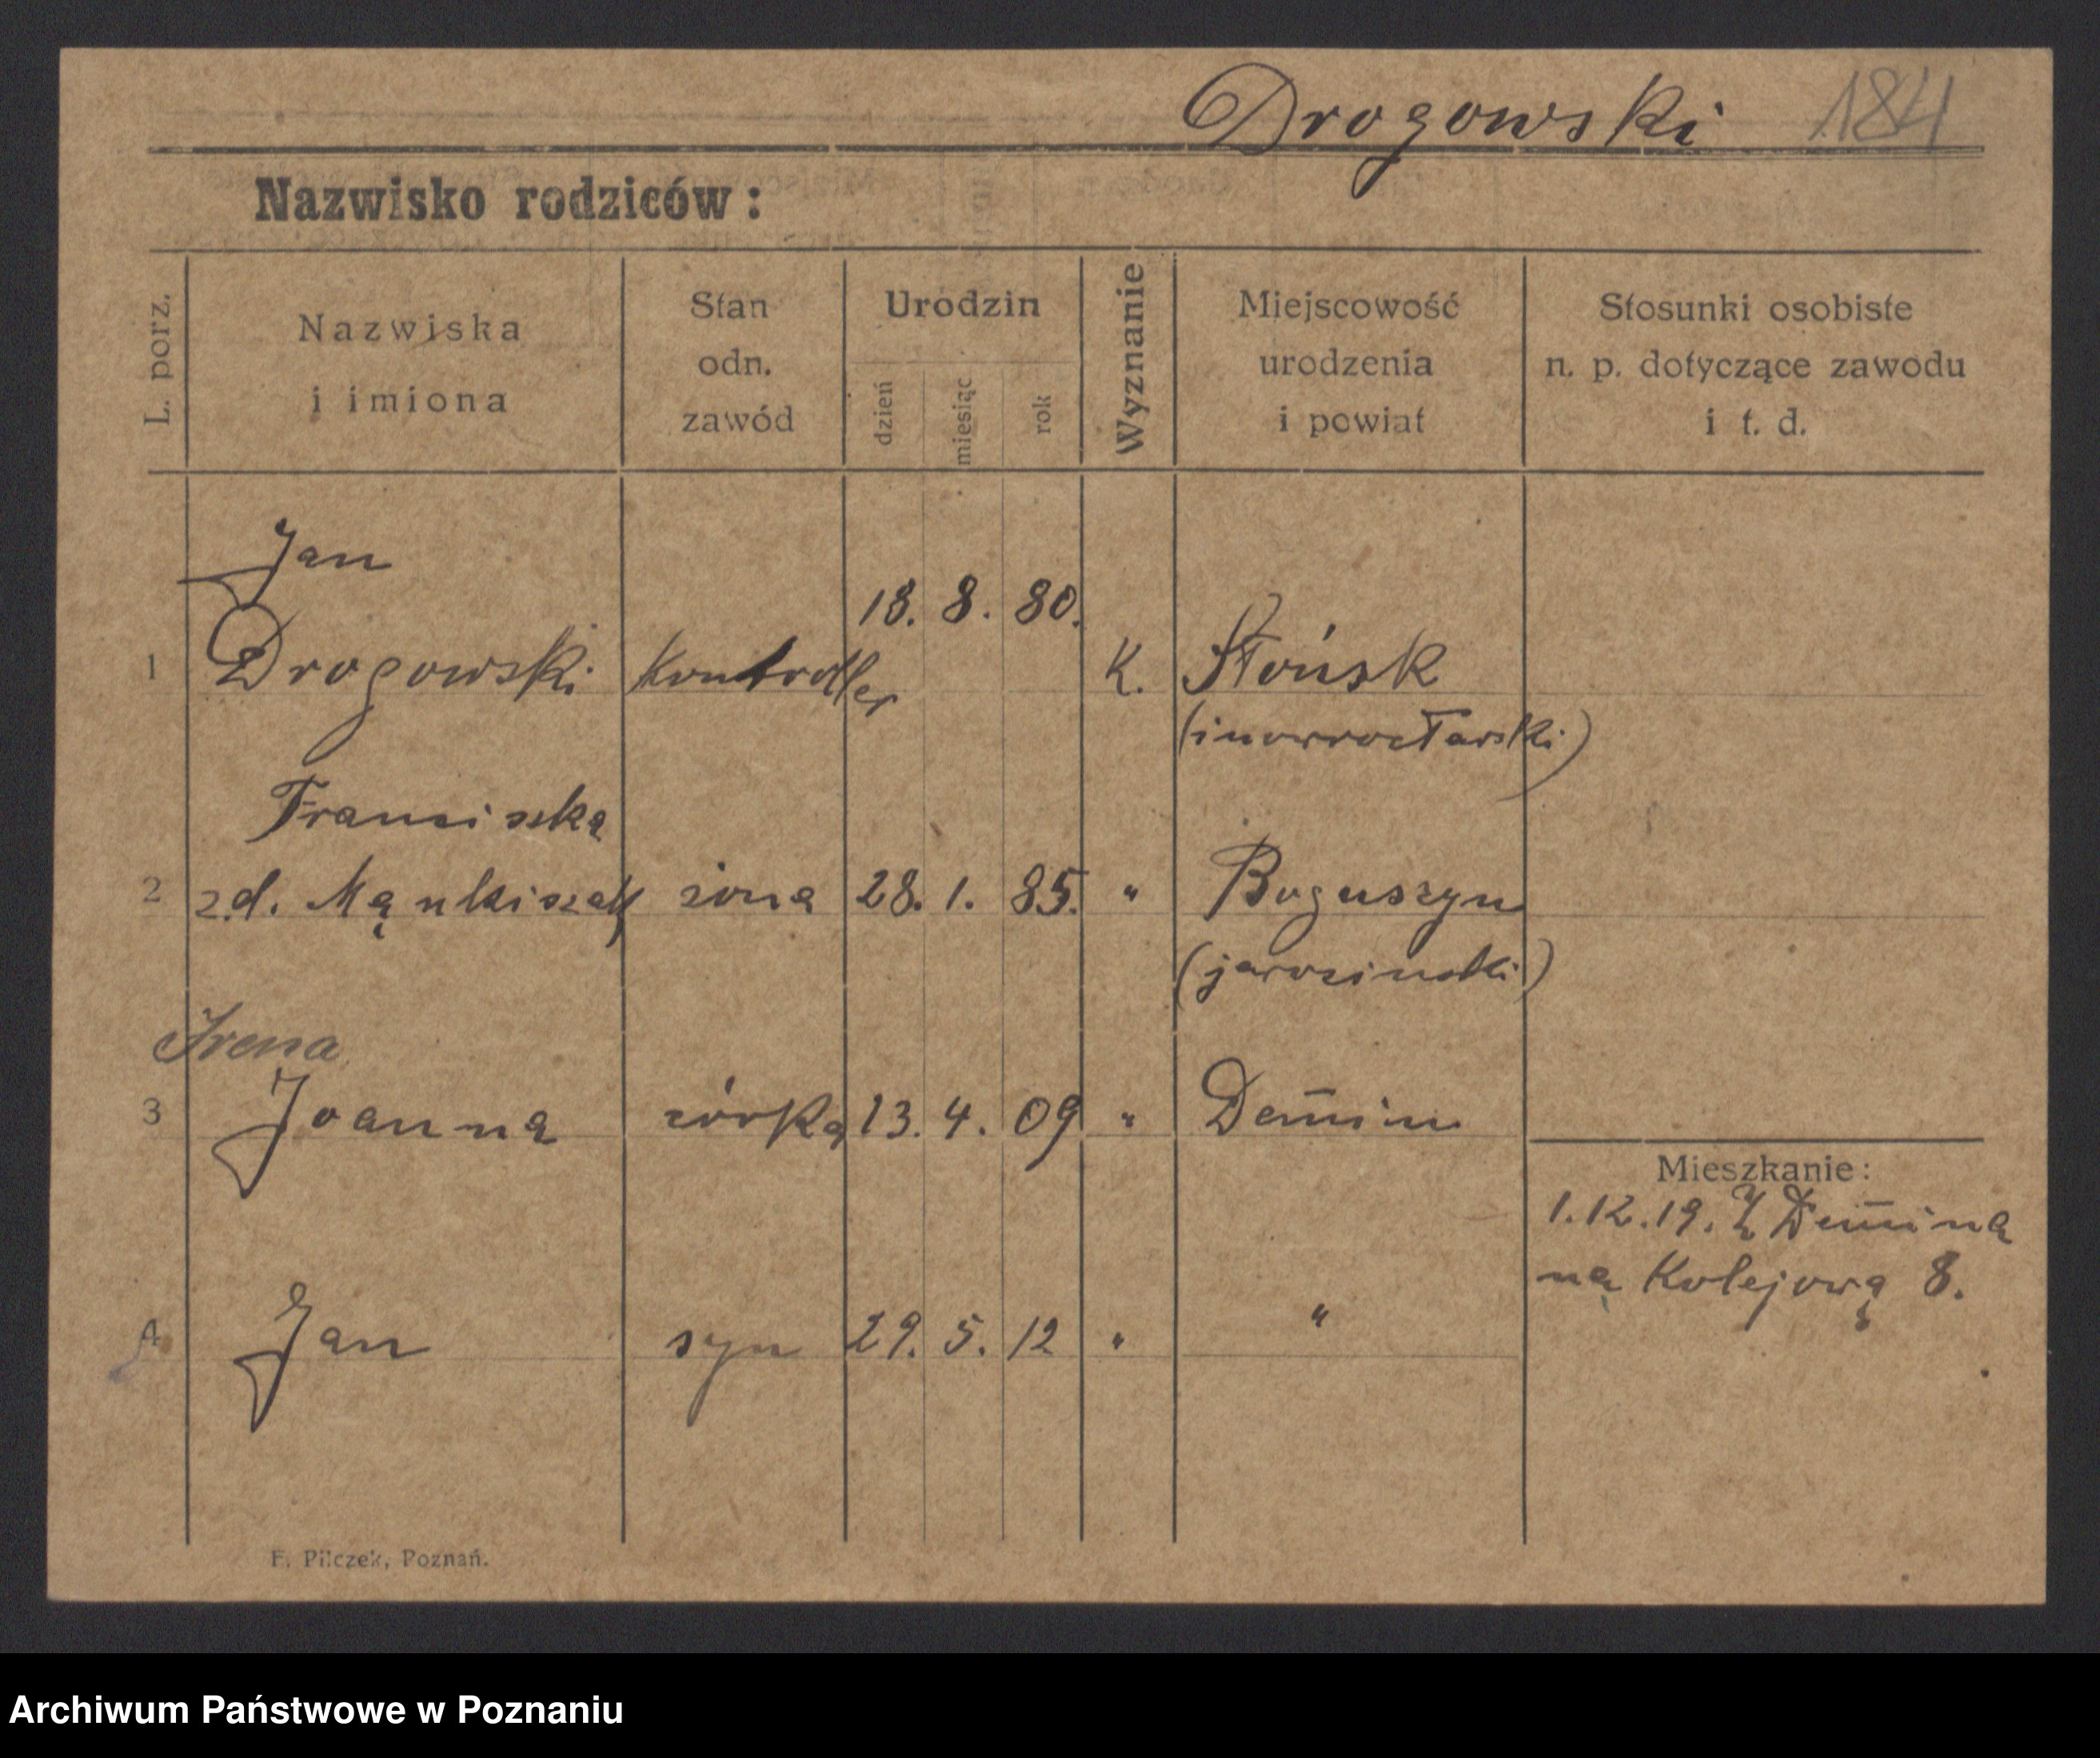 Drogowski 184
Nazwisko rodziców:
L. porz.
Nazwiska
i imiona
Stan
odn.
zawód
Urodzin
dzień
miesiąc
rok
Wyznanie
Miejscowość
urodzenia
i powiat
Stosunki osobiste
n. p. dotyczące zawodu
i t. d.
Jan
18. 8. 80.
1 Drogowski Kontroller K. Słońsk
(inowrocławski)
Franciszka
2 z.d. żona 28. 1. 85. " Boguszyn
(jarocinski)
Irena
3 Joanna córka 13. 4. 09 " Dem̄in
Mieszkanie:
1.12.19. Z Dem̄ina
na Kolejową 8.
4 Jan syn 29. 5. 12 " "
F. Pilczek, Poznań.
Archiwum Państwowe w Poznaniu